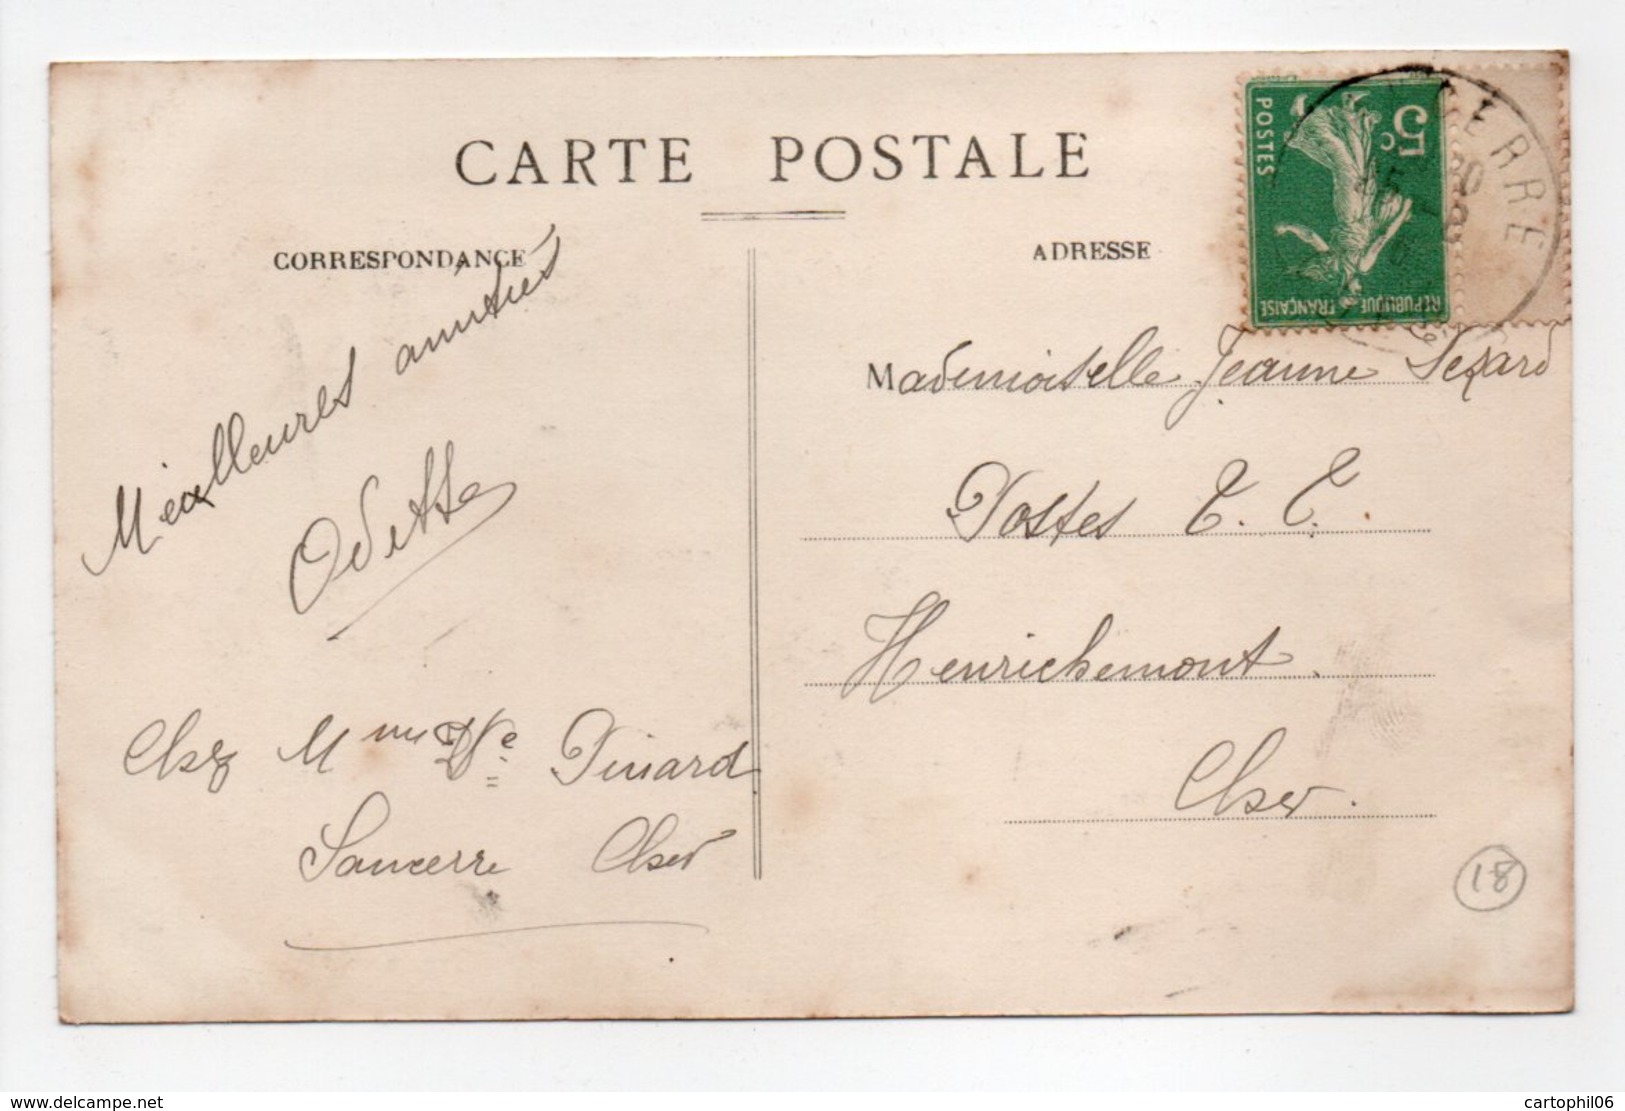 CARTE POSTALE
CORRESPONDANCE
Meilleures amitiés
Odette
Chez Mme Vve Pinard
Sancerre Cher
ADRESSE
5c
POSTES
REPUBLIQUE FRANÇAISE
ERRE
Mademoiselle Jeanne
Postes T. T.
Henrichemont.
Cher.
18
www.delcampe.net
cartophil06